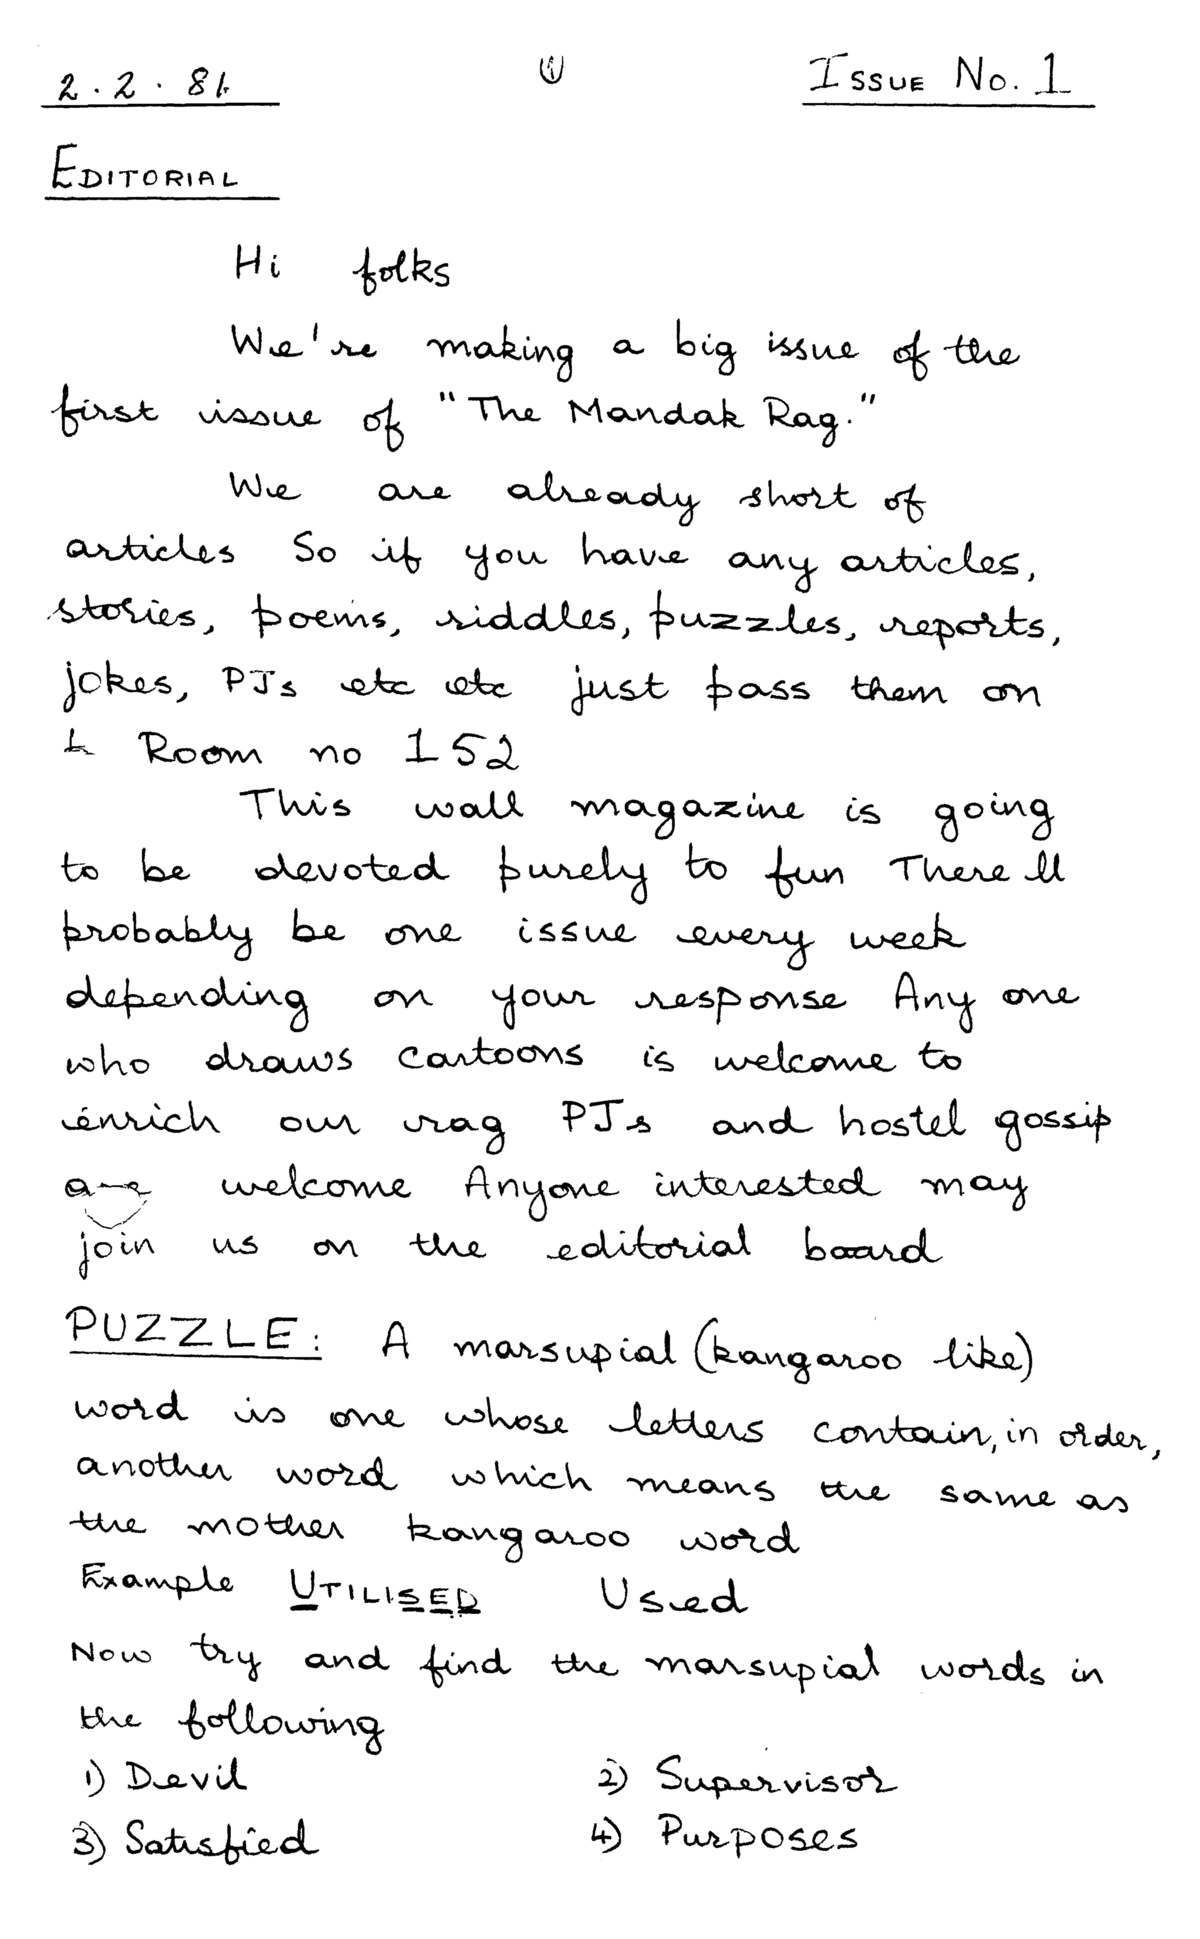 2.2.81. 1 ISSUE NO. 1
EDITORIAL
Hi folks
We're making a big issue of the
first issue of "The Mandak Rag."
We are already short of
articles So if you have any articles,
stories, poems, riddles, puzzles, reports,
jokes, PJs etc etc just pass them on
to Room no 152
This wall magazine is going
to be devoted purely to fun There ll
probably be one issue every week
depending on your response Any one
who draws cartoons is welcome to
enrich our rag PJs and hostel gossip
are welcome Anyone interested may
join us on the editorial board
PUZZLE: A marsupial (kangaroo like)
word is one whose letters contain, in order,
another word which means the same as
the mother kangaroo word
Example UTILISED Used
Now try and find the marsupial words in
the following
1) Devil 2) Supervisor
3) Satisfied 4) Purposes